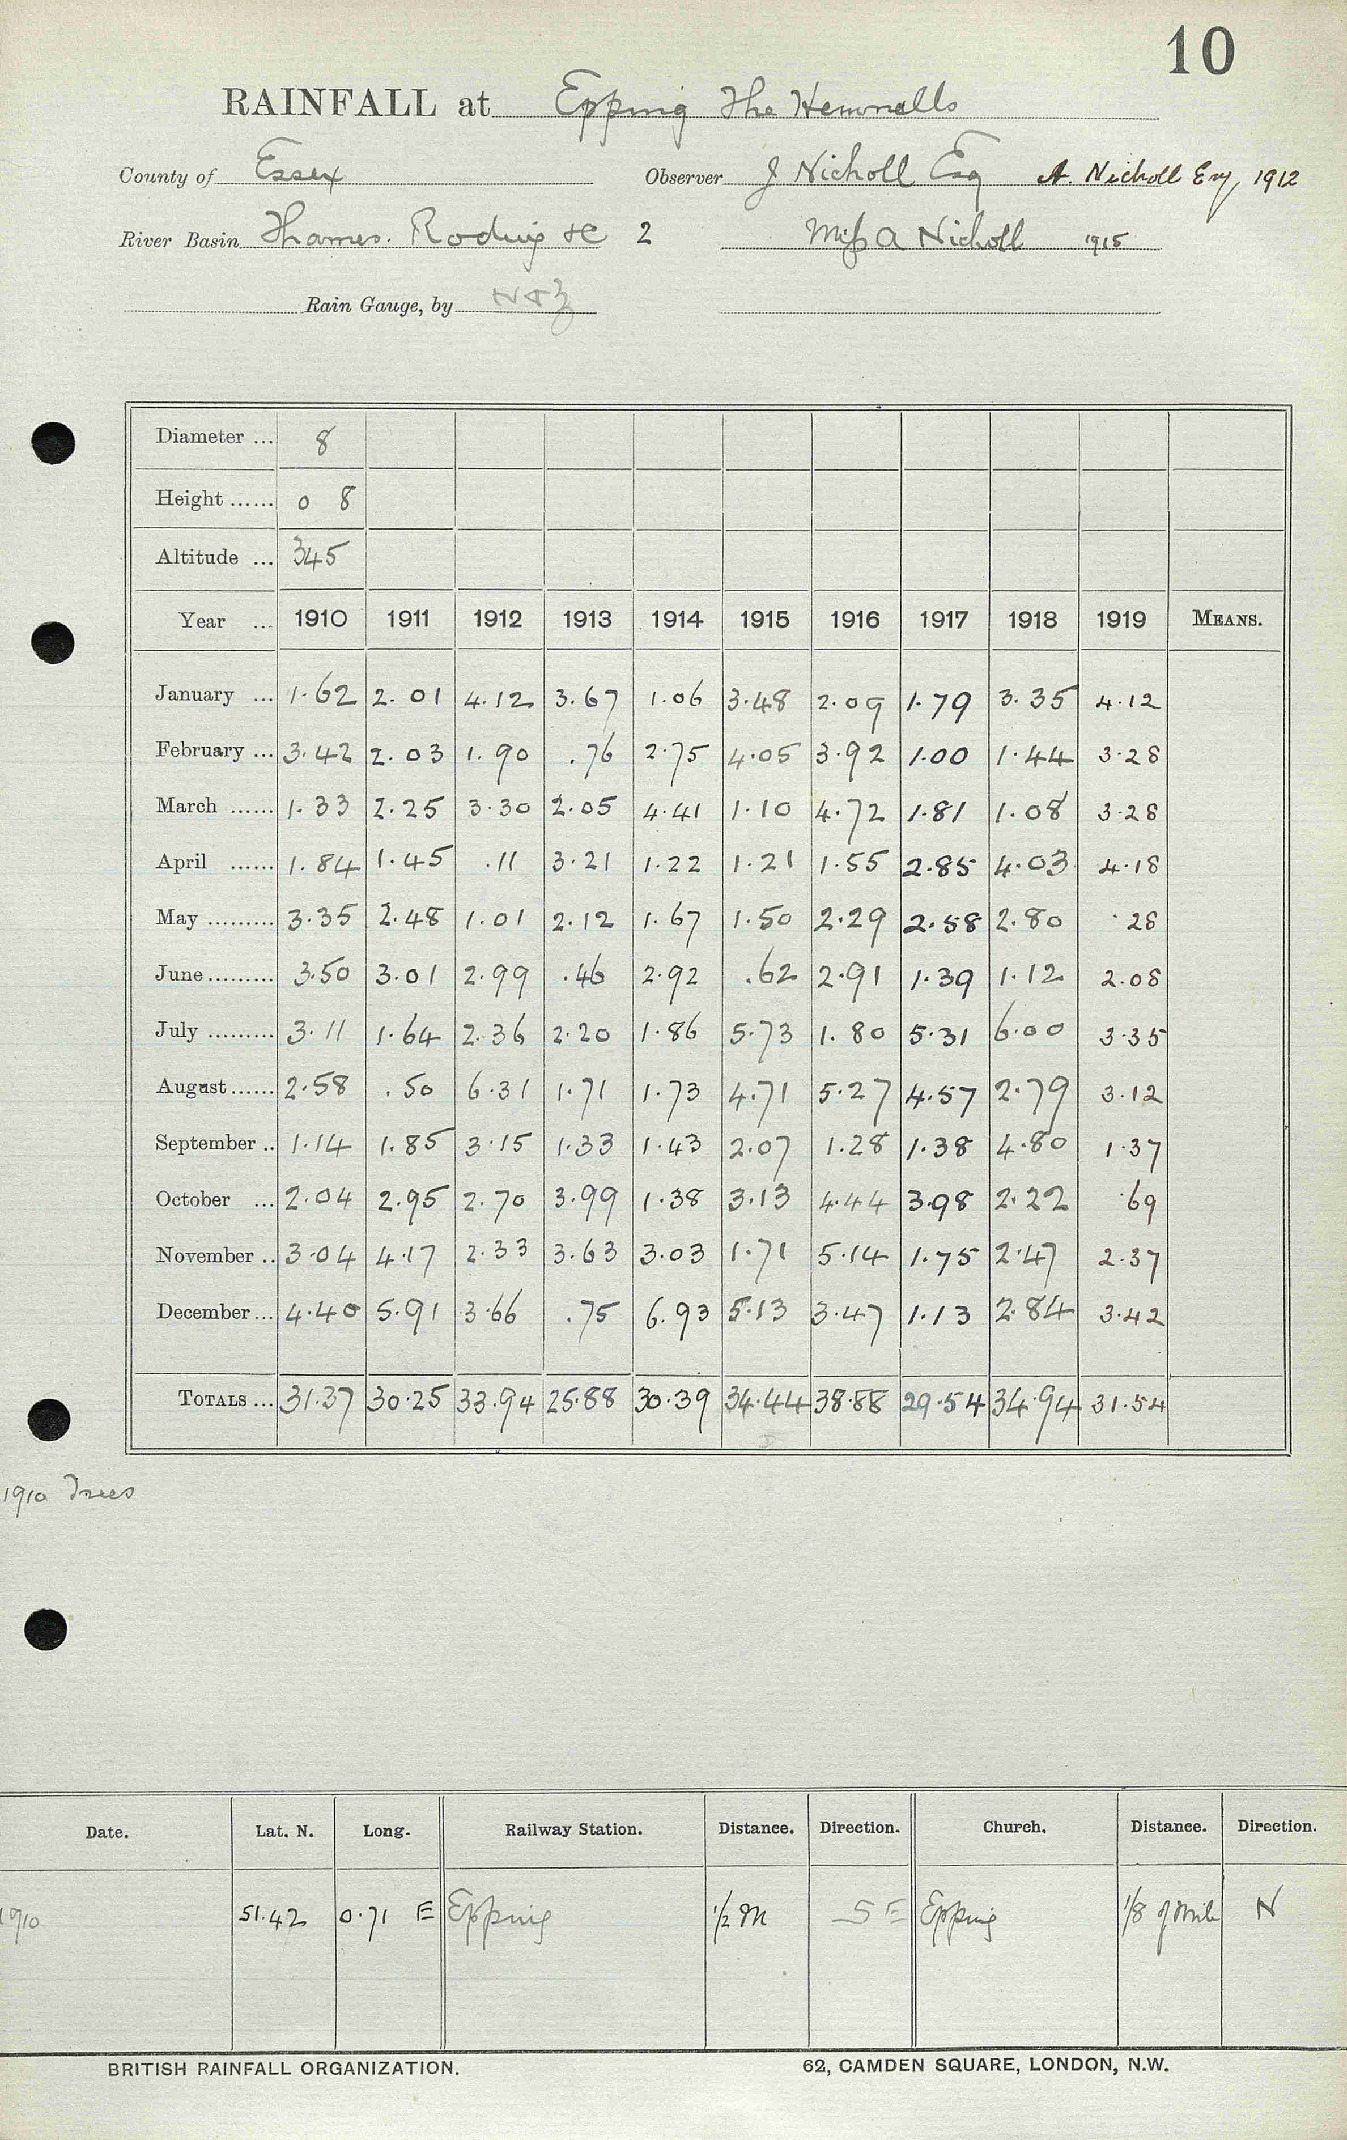 10
RAINFALL at Epping The Hemnalls
County of Essex Observer J Nicholl Esq A. Nicholl Esq, 1912
River Basin Thames. Roding &c 2 Miss A Nicholl 1915
Rain Gauge, by N & Z
Diameter ... 8
Height ...... 0 8
Altitude ... 345
Year ... 1910 1911 1912 1913 1914 1915 1916 1917 1918 1919 MEANS.
January ... 1.62 2.01 4.12 3.67 1.06 3.48 2.09 1.79 3.35 4.12
February ... 3.42 2.03 1.90 .76 2.75 4.05 3.92 1.00 1.44 3.28
March ...... 1.33 2.25 3.30 2.05 4.41 1.10 4.72 1.81 1.08 3.28
April ...... 1.84 1.45 .11 3.21 1.22 1.21 1.55 2.85 4.03 4.18
May ......... 3.35 2.48 1.01 2.12 1.67 1.50 2.29 2.58 2.80 .28
June ......... 3.50 3.01 2.99 .46 2.92 .62 2.91 1.39 1.12 2.08
July ......... 3.11 1.64 2.36 2.20 1.86 5.73 1.80 5.31 6.00 3.35
August ...... 2.58 .50 6.31 1.71 1.73 4.71 5.27 4.57 2.79 3.12
September .. 1.14 1.85 3.15 1.33 1.43 2.07 1.28 1.38 4.80 1.37
October ... 2.04 2.95 2.70 3.99 1.38 3.13 4.44 3.98 2.22 .69
November .. 3.04 4.17 2.33 3.63 3.03 1.71 5.14 1.75 2.47 2.37
December ... 4.40 5.91 3.66 .75 6.93 5.13 3.47 1.13 2.84 3.42
TOTALS ... 31.37 30.25 33.94 25.88 30.39 34.44 38.88 29.54 34.94 31.54
1910 Trees
Date. Lat. N. Long. Railway Station. Distance. Direction. Church. Distance. Direction.
1910 51.42 0.71 E Epping 1/2 M S E Epping 1/8 of Mile N
BRITISH RAINFALL ORGANIZATION. 62, CAMDEN SQUARE, LONDON, N.W.